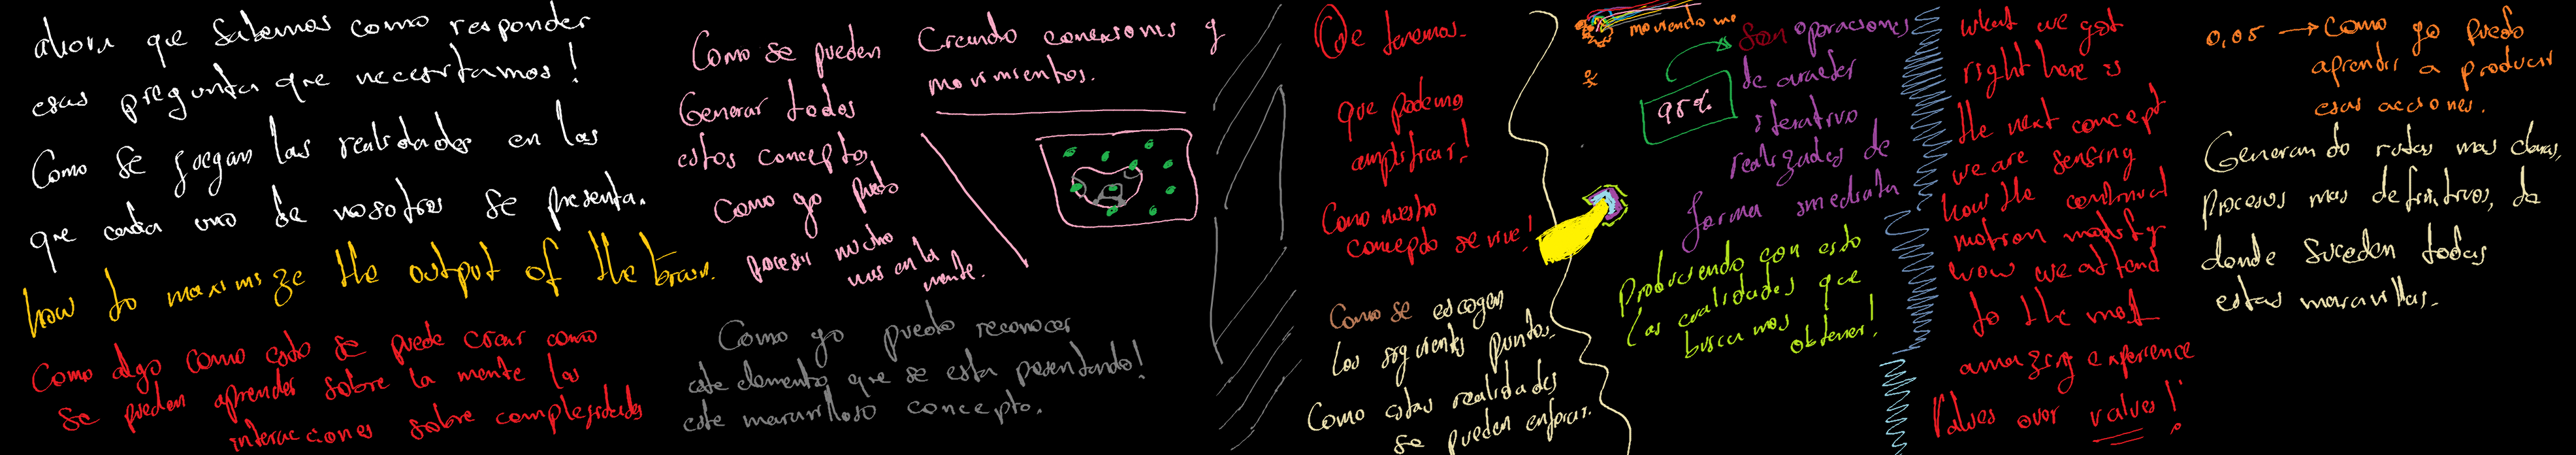 ahora que sabemos como responder
esas pregunta que necesitamos!
Como se juegan las realidades en las
que cada uno de nosotros se presenta.
how to maximize the output of the brain.
Como algo como esto se puede crear como
se pueden aprender sobre la mente las
interacciones sobre complejidades
Como se pueden
Generar todos
estos conceptos
Como yo puedo
mucho
mas en la
mente.
Creando conexiones y
movimientos.
Como yo puedo reconocer
este elemento que se esta presentando!
este maravilloso concepto.
De tenemos
que podemo
amplificar!
Como nuestro
concepto se vive!
Como se escogen
los siguientes puntos.
Como estas realidades
se pueden enfocar.
moviendo me
95%
Son operaciones
de caracter
iterativo
realizadas de
forma inmediata
Produciendo con esto
las cualidades que
buscamos
obtener!
what we got
right here is
the next concept
we are sensing
how the continual
motion
how we attend
to the most
amazing experience
Values over values!
0,05 → Como yo puedo
aprender a producir
esas acciones.
Generando rutas mas claras,
procesos mas definitivos, de
donde suceden todas
estas maravillas.